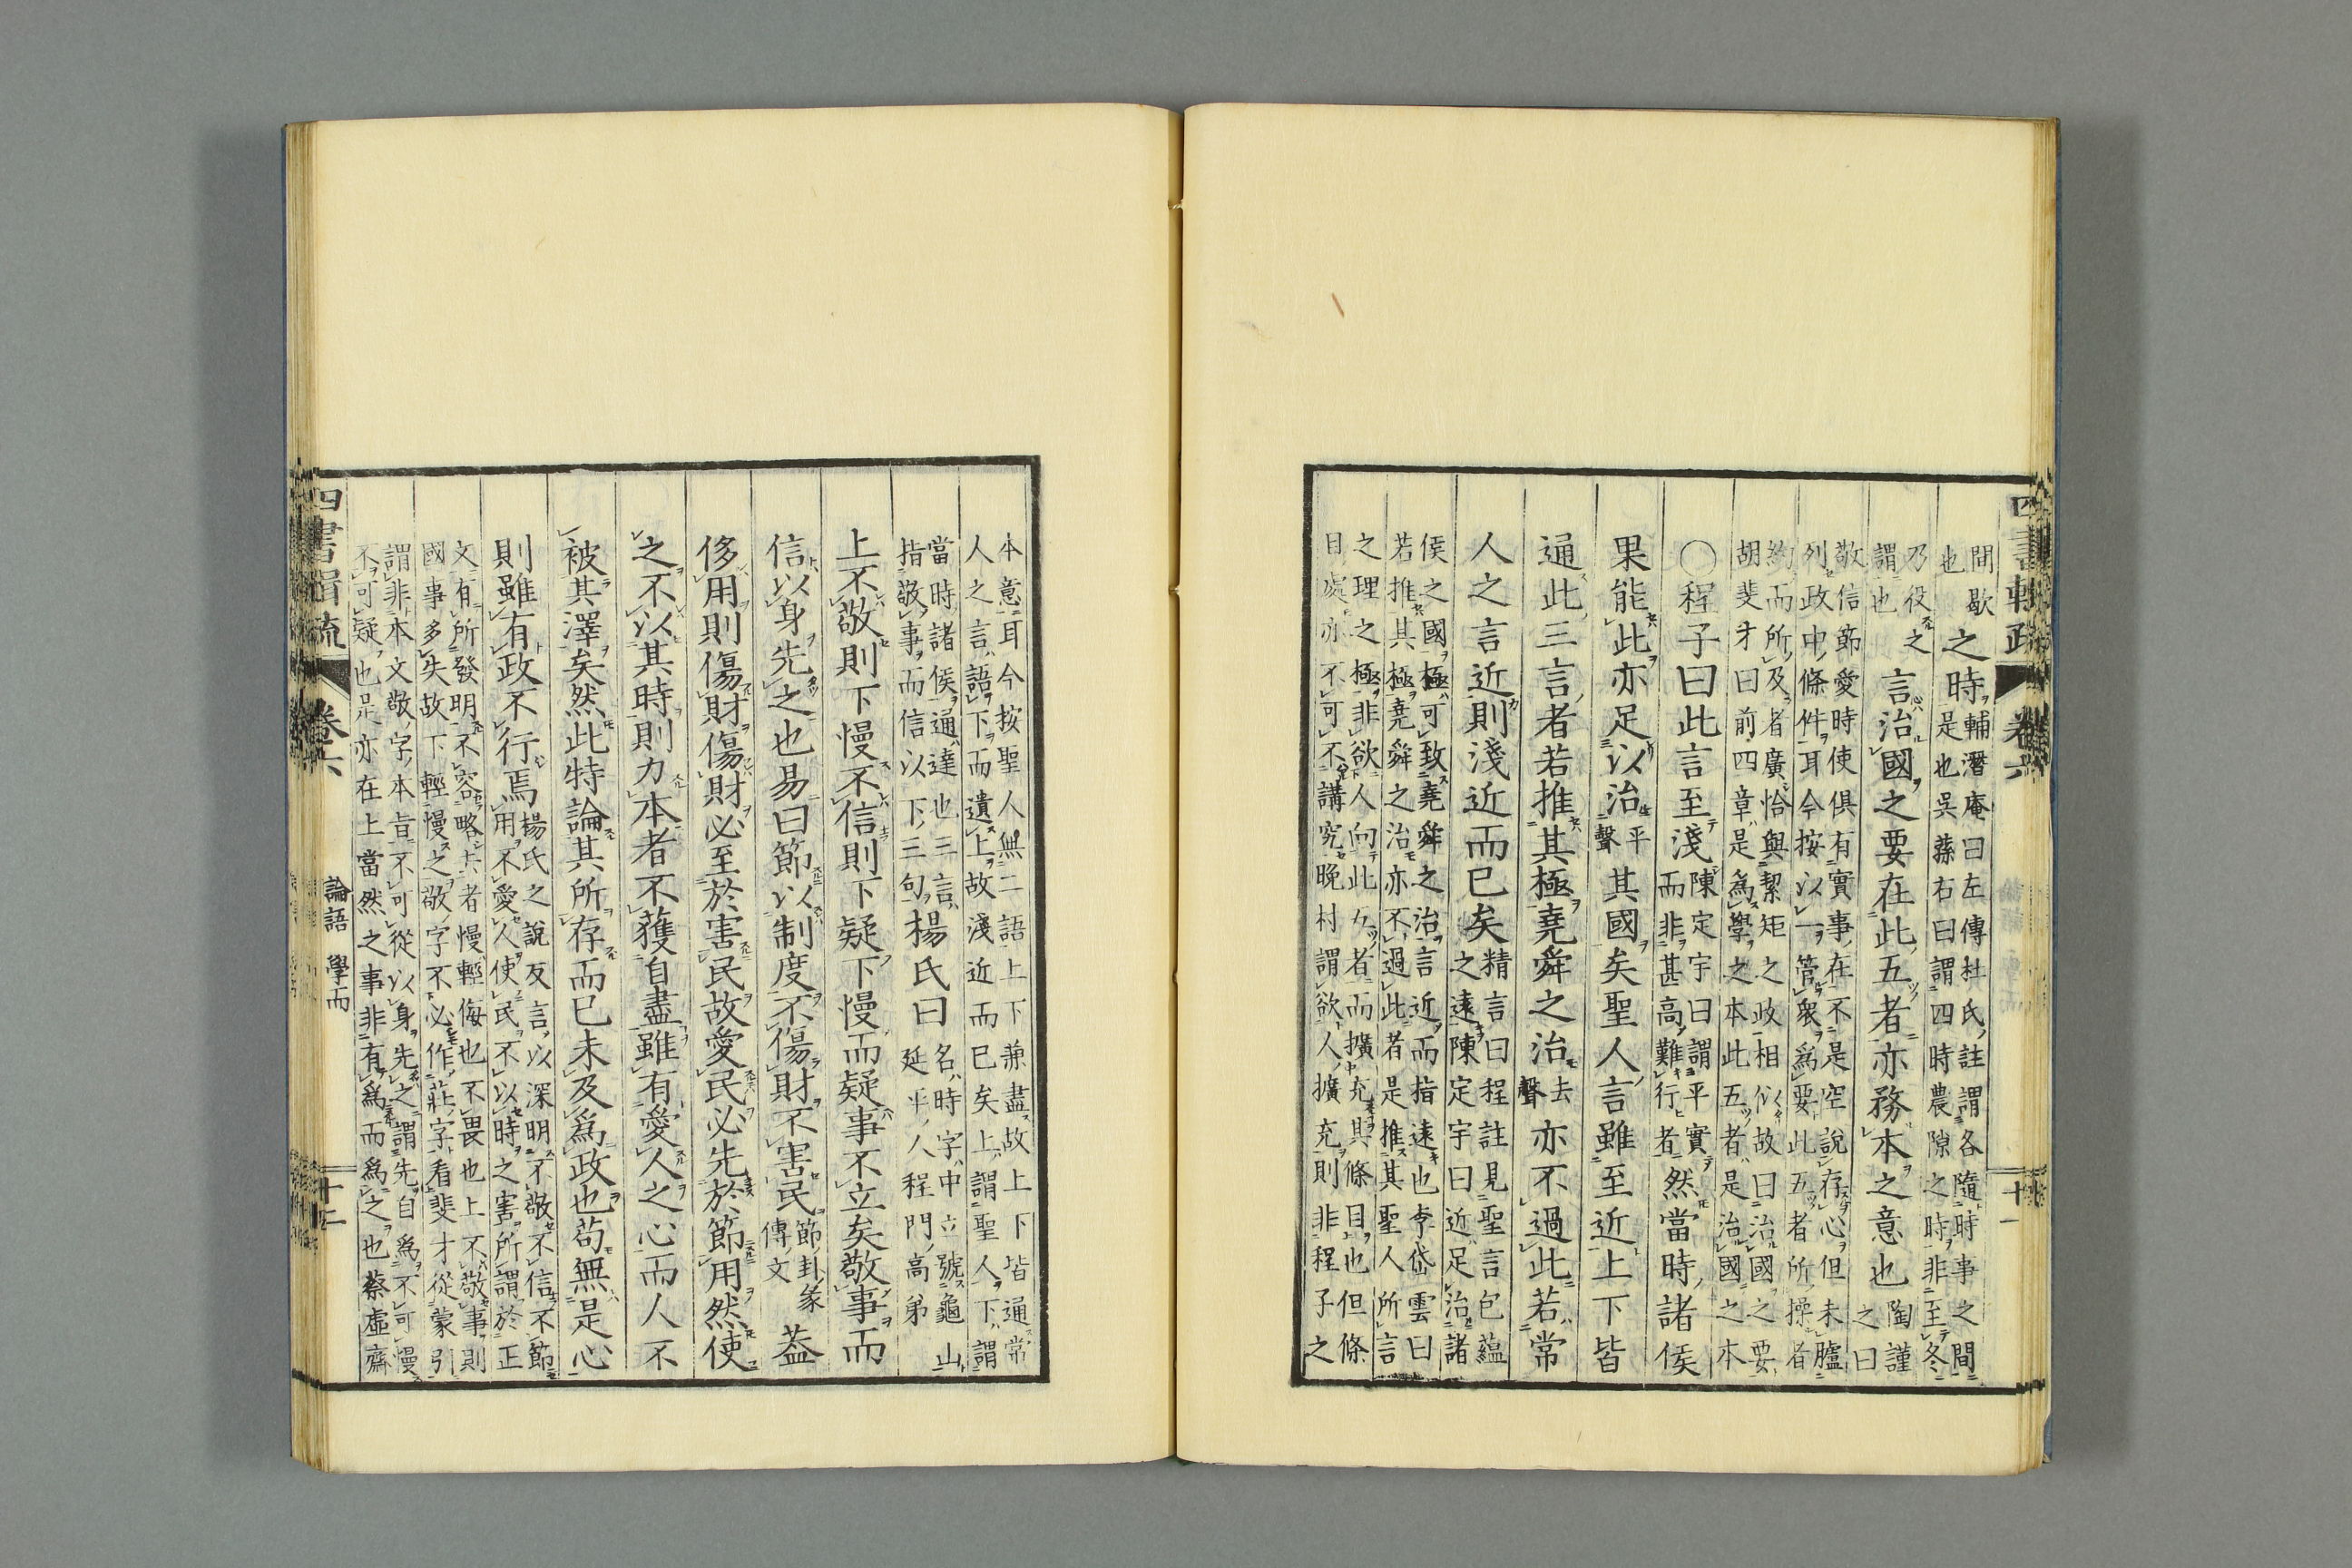 四書輯疏 卷六 十一
間歇之時輔潛庵曰左傳杜氏註謂各隨時事之間
也是也吳蓀右曰謂四時農隙之時非至冬
乃役之
謂也言治國之要在此五者亦務本之意也陶謹之曰
敬信節愛時使俱有實事在不是空說存心但未臚
列政中條件耳今按以一管衆爲要此五者所操者
約而所及者廣恰與絜矩之政相似故曰治國之要
胡斐才曰前四章是爲學之本此五者是治國之本
〇程子曰此言至淺陳定宇曰謂平實
而非甚高難行者然當時諸侯
果能此亦足以治平聲其國矣聖人言雖至近上下皆
通此三言者若推其極堯舜之治去聲亦不過此若常
人之言近則淺近而已矣精言曰程註見聖言包蘊
之遠陳定宇曰近足治諸
侯之國極可致堯舜之治言近而指遠也李岱雲曰
若推其極堯舜之治亦不過此者是推其聖人所言
之理之極非欲人向此五者而擴充其條目也但條
目處亦不可不講究晚村謂欲人擴充則非程子之
本意耳今按聖人無二語上下兼盡故上下皆通常
人之言語下而遺上故淺近而已矣上謂聖人下謂
當時諸侯通達也三言
指敬事而信以下三句楊氏曰名時字中立號龜山
延平人程門高弟
上不敬則下慢不信則下疑下慢而疑事不立矣敬事而
信以身先之也易曰節以制度不傷財不害民節卦彖
傳文蓋
侈用則傷財傷財必至於害民故愛民必先於節用然使
之不以其時則力本者不獲自盡雖有愛人之心而人不
被其澤矣然此特論其所存而已未及爲政也苟無是心
則雖有政不行焉楊氏之說反言以深明不敬不信不節
用不愛人使民不以時之害所謂於正
文有所發明不容略者慢輕侮也不畏也上不敬事則
國事多失故下輕慢之敬字不必作莊字看斐才從蒙引
謂非本文敬字本旨不可從以身先之謂先自爲不可慢
不可疑也是亦在上當然之事非有爲而爲之也蔡虛齋
四書輯疏 卷六 論語 學而 十二